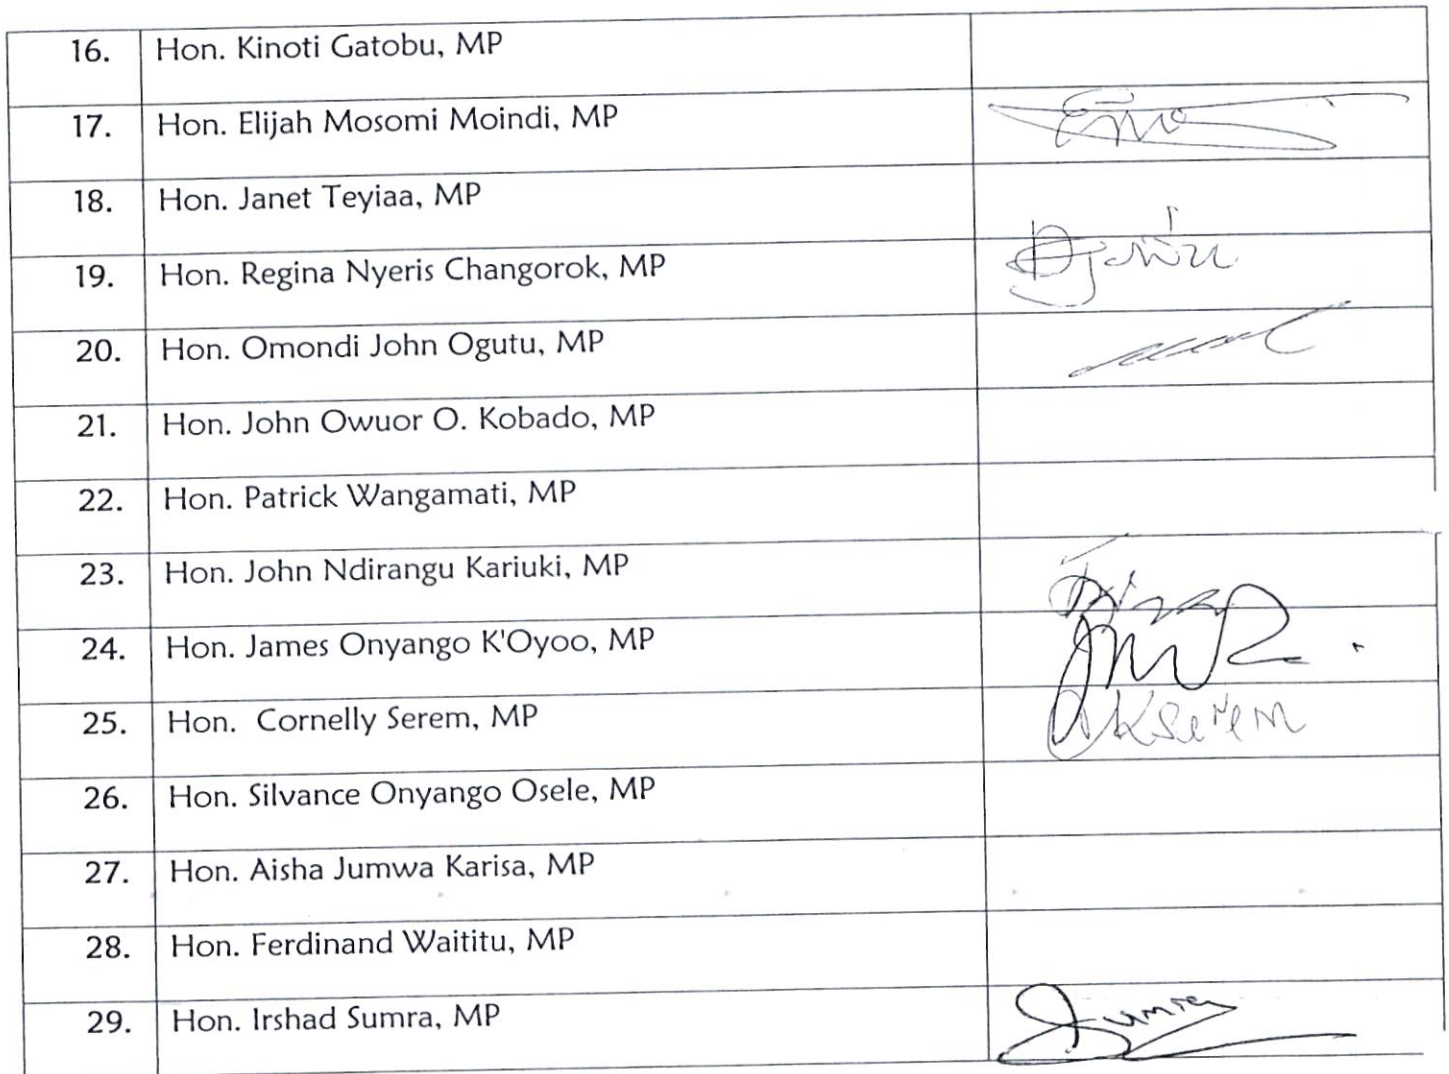 16. Hon. Kinoti Gatobu, MP
17. Hon. Elijah Mosomi Moindi, MP
18. Hon. Janet Teyiaa, MP
19. Hon. Regina Nyeris Changorok, MP
20. Hon. Omondi John Ogutu, MP
21. Hon. John Owuor O. Kobado, MP
22. Hon. Patrick Wangamati, MP
23. Hon. John Ndirangu Kariuki, MP
24. Hon. James Onyango K'Oyoo, MP
25. Hon. Cornelly Serem, MP Kserem
26. Hon. Silvance Onyango Osele, MP
27. Hon. Aisha Jumwa Karisa, MP
28. Hon. Ferdinand Waititu, MP
29. Hon. Irshad Sumra, MP Sumra